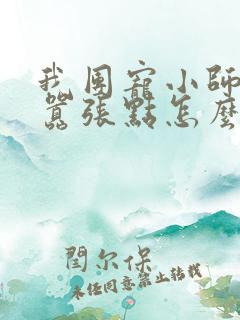 我团寵小師
囂張點怎麼
閆尔保
未经同意禁止转载